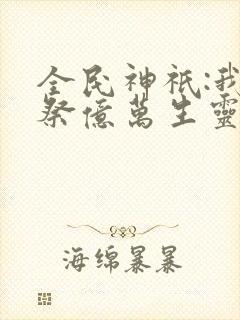 全民神祇:我
祭億萬生靈
海绵暴暴